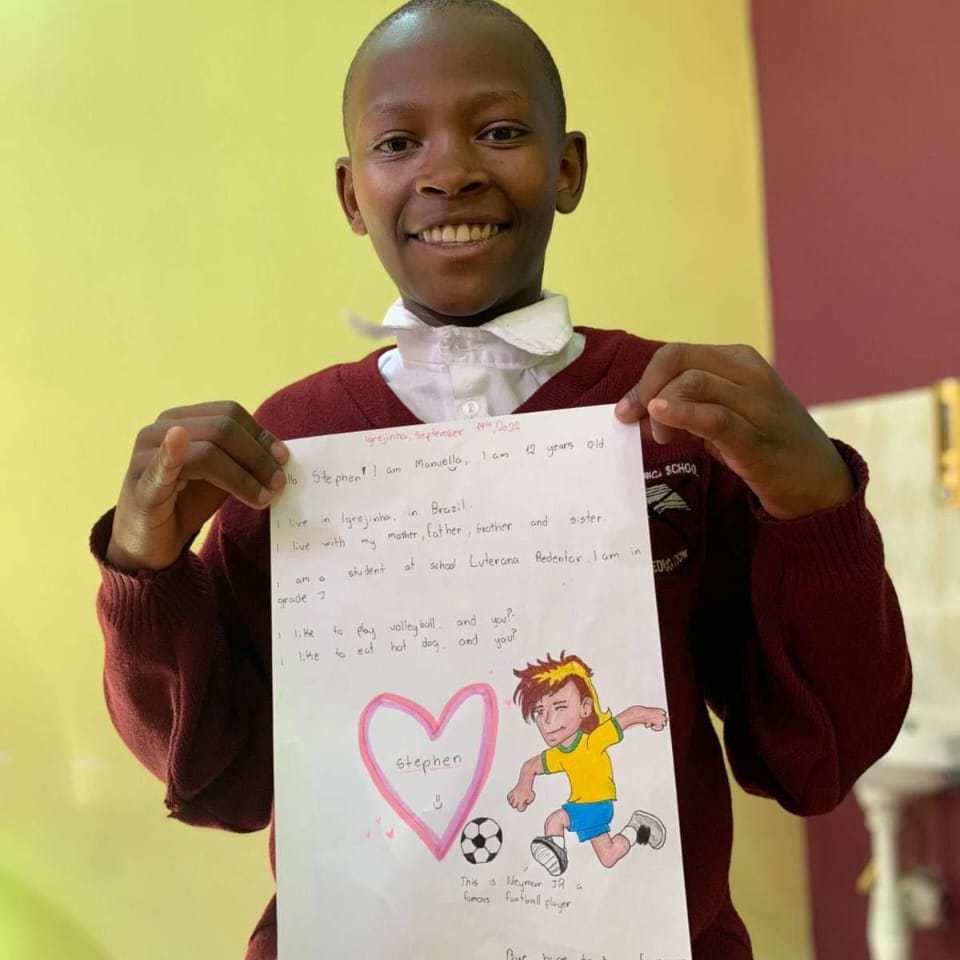 Igrejinha, September 14th, 2022
Hello Stephen! I am Manuella, I am 12 years old
I live in Igrejinha, in Brazil.
I live with my mother, father, brother and sister.
I am a student at school Luterana Redentor. I am in
grade 7
I like to play volleyball. and you?
I like to eat hot dog. and you?
Stephen
This is Neymar JR a
famous football player
Bye, hope to
SCHOOL